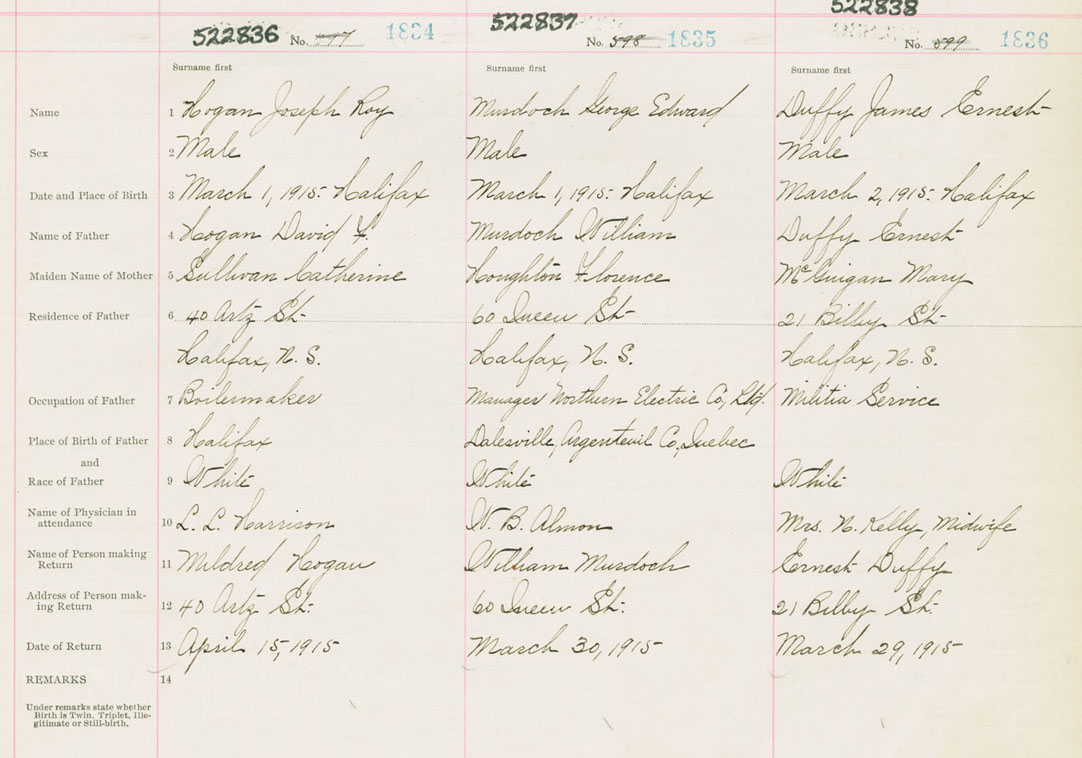 522836 No. 597 1834
522837 No. 598 1835
522838 No. 599 1836
Surname first Surname first Surname first
Name 1 Hogan Joseph Roy Murdoch George Edward Duffy James Ernest
Sex 2 Male Male Male
Date and Place of Birth 3 March 1, 1915. Halifax March 1, 1915. Halifax March 2, 1915. Halifax
Name of Father 4 Hogan David F. Murdoch William Duffy Ernest
Maiden Name of Mother 5 Sullivan Catherine Houghton Florence McGuigan Mary
Residence of Father 6 40 Artz St. 60 Queen St. 21 Bilby St.
Halifax, N. S. Halifax, N. S. Halifax, N. S.
Occupation of Father 7 Boilermaker Manager Northern Electric Co, Ltd. Militia Service
Place of Birth of Father 8 Halifax Dalesville, Argenteuil Co, Quebec
and
Race of Father 9 White White White
Name of Physician in
attendance 10 L. L. Harrison W. B. Almon Mrs. N. Kelly, Midwife
Name of Person making
Return 11 Mildred Hogan William Murdoch Ernest Duffy
Address of Person mak-
ing Return 12 40 Artz St. 60 Queen St. 21 Bilby St.
Date of Return 13 April 15, 1915 March 30, 1915 March 29, 1915
REMARKS 14
Under remarks state whether
Birth is Twin, Triplet, Ille-
gitimate or Still-birth.